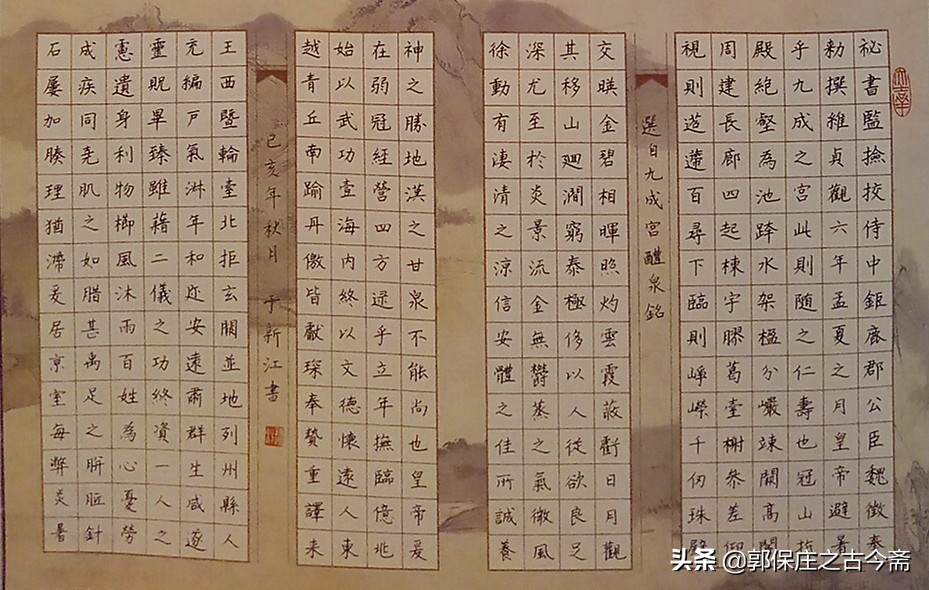 祕書監撿挍侍中鉅鹿郡公臣魏徵奉
勑撰維貞觀六年孟夏之月皇帝避暑
乎九成之宮此則随之仁壽也冠山抗
殿絶壑為池跨水架楹分巖竦闕高閣
周建長廊四起棟宇膠葛臺榭叅差仰
視則迢遰百尋下臨則崢嶸千仞珠壁
選自九成宮醴泉銘
交暎金碧相暉照灼雲霞蔽虧日月觀
其移山廻澗窮泰極侈以人從欲良足
深尤至於炎景流金無欝蒸之氣微風
徐動有淒清之涼信安體之佳所誠養
神之勝地漢之甘泉不能尚也皇帝爰
在弱冠經營四方逮乎立年撫臨億兆
始以武功壹海內終以文德懷遠人東
越青丘南踰丹儌皆獻琛奉贄重譯来
己亥年秋月 于新江書
王西暨輪臺北拒玄闕並地列州縣人
充編戸氣淋年和迩安遠肅群生咸遂
靈貺畢臻雖藉二儀之功終資一人之
憲遺身利物櫛風沐雨百姓為心憂勞
成疾同尭肌之如腊甚禹足之胼胝針
石屢加腠理猶滯爰居京室每弊炎暑
头条 @郭保庄之古今斋